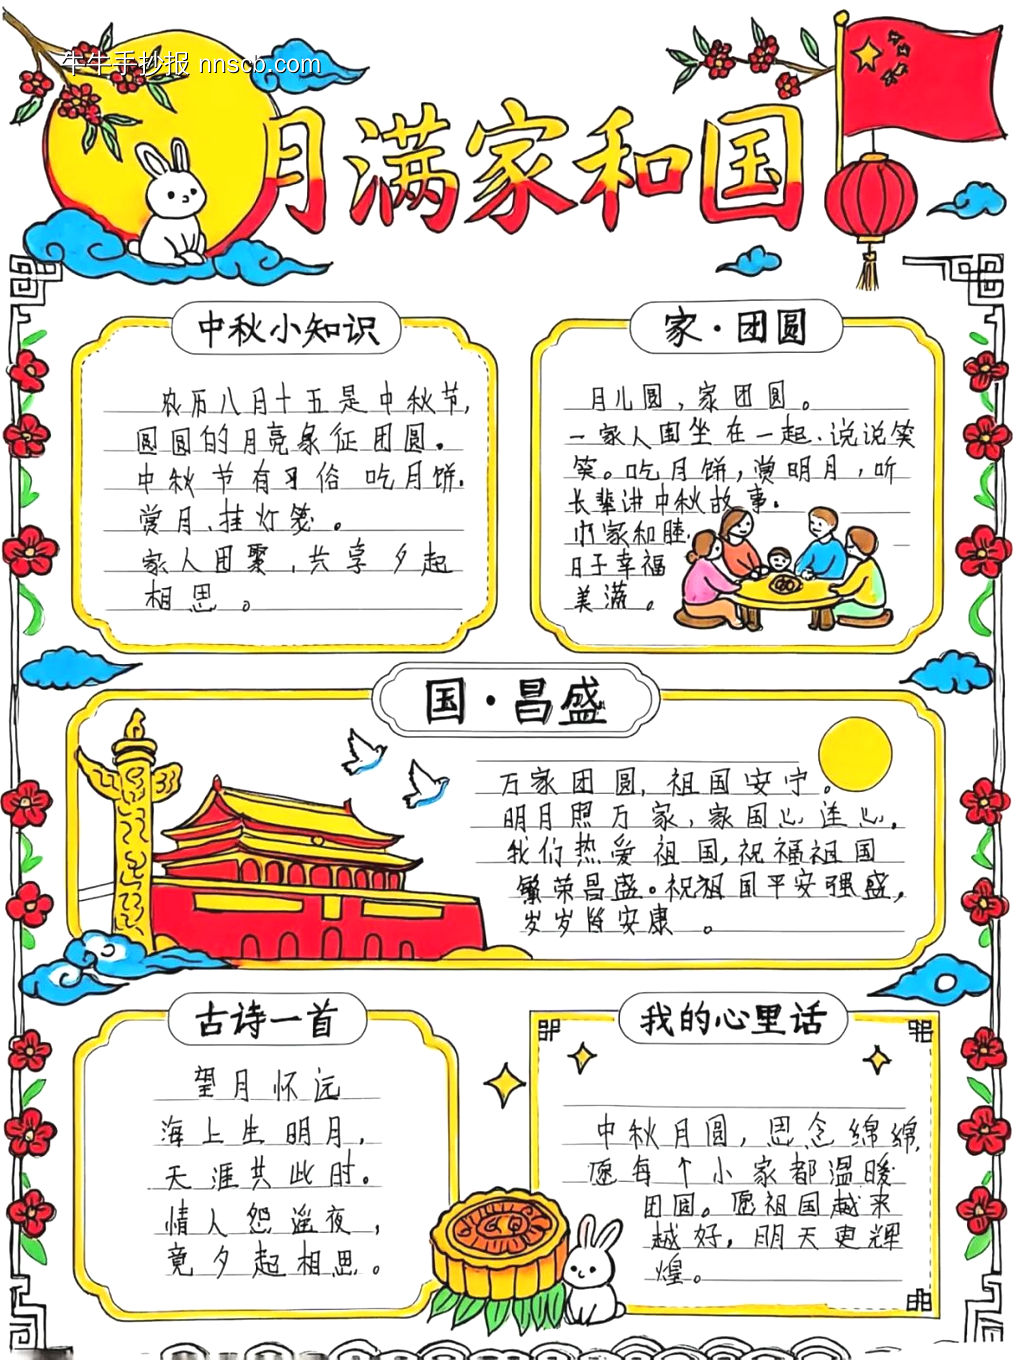 牛牛手抄报 nnscb.com
月满家和国
中秋小知识
农历八月十五是中秋节,
圆圆的月亮象征团圆。
中秋节有习俗吃月饼.
赏月、挂灯笼。
家人团聚,共享夕起
相思。
家·团圆
月儿圆,家团圆。
一家人围坐在一起.说说笑
笑。吃月饼,赏明月,听
长辈讲中秋故事.
小家和睦,
日子幸福
美满。
国·昌盛
万家团圆,祖国安宁。
明月照万家,家国心连心.
我们热爱祖国,祝福祖国
繁荣昌盛。祝祖国平安强盛,
岁岁皆安康。
古诗一首
望月怀远
海上生明月,
天涯共此时。
情人怨遥夜,
竟夕起相思。
我的心里话
中秋月圆,思念绵绵,
愿每个小家都温暖
团圆。愿祖国越来
越好,明天更辉
煌。